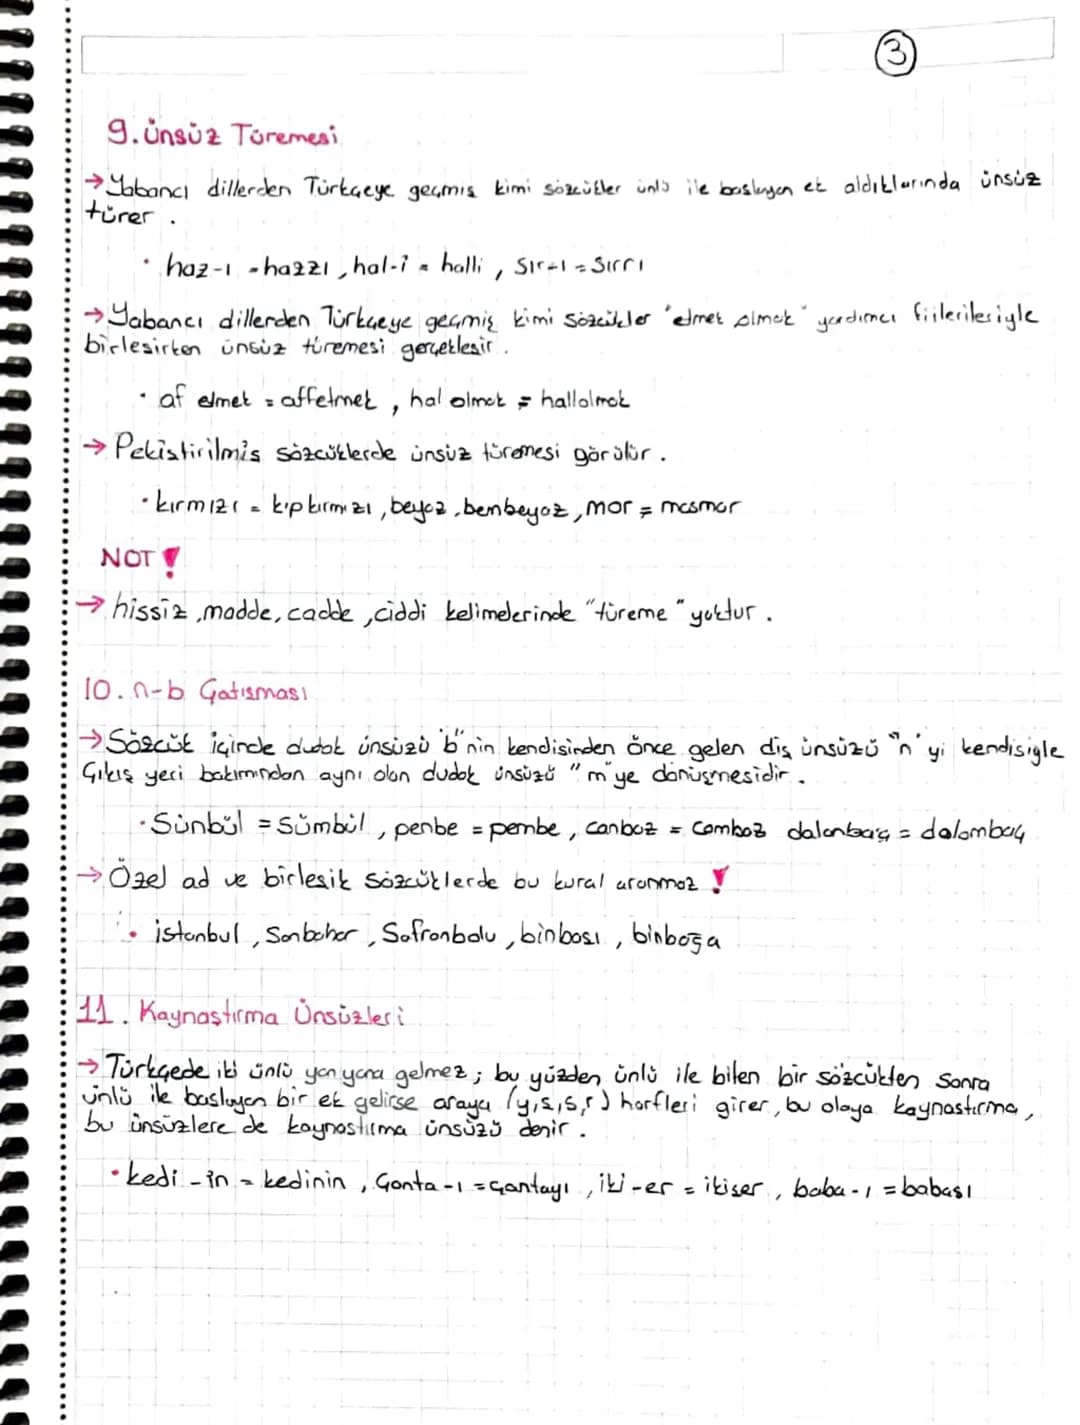 3
9. Ünsüz Türemesi
→ Yabancı dillerden Türkçeye geçmiş kimi sözcükler ünlü ile başlayan ek aldıklarında ünsüz
türer.
• haz-ı = hazzı, hal-i = halli, sır-ı = sırrı
→ Yabancı dillerden Türkçeye geçmiş kimi sözcükler "etmek olmak" yardımcı fiilerileriyle
birleşirken ünsüz türemesi gerçekleşir.
• af etmek = affetmek, hal olmak = hallolmak
→ Pekiştirilmiş sözcüklerde ünsüz türemesi görülür.
• kırmızı = kıpkırmızı, beyaz, bembeyaz, mor = mosmor
NOT !
→ hissiz, madde, cadde, ciddi kelimelerinde "türeme" yoktur.
10. n-b Çatışması
→ Sözcük içinde dudak ünsüzü "b"nin kendisinden önce gelen diş ünsüzü "n"yi kendisiyle
Çıkış yeri bakımından aynı olan dudak ünsüzü "m"ye dönüşmesidir.
• Sünbül = Sümbül, penbe = pembe, canbaz = cambaz dalanbaç = dalambaç
→ Özel ad ve birleşik sözcüklerde bu kural aranmaz !
• istanbul, Sonbahar, Safranbolu, binbaşı, binboğa
11. Kaynaştırma Ünsüzleri
→ Türkçede iki ünlü yan yana gelmez; bu yüzden ünlü ile biten bir sözcükten sonra
ünlü ile başlayan bir ek gelirse araya (y,ş,s,r) harfleri girer, bu olaya kaynaştırma,
bu ünsüzlere de kaynaştırma ünsüzü denir.
• kedi -in = kedinin, Çanta-ı = çantayı, iki-er = ikişer, baba-ı = babası